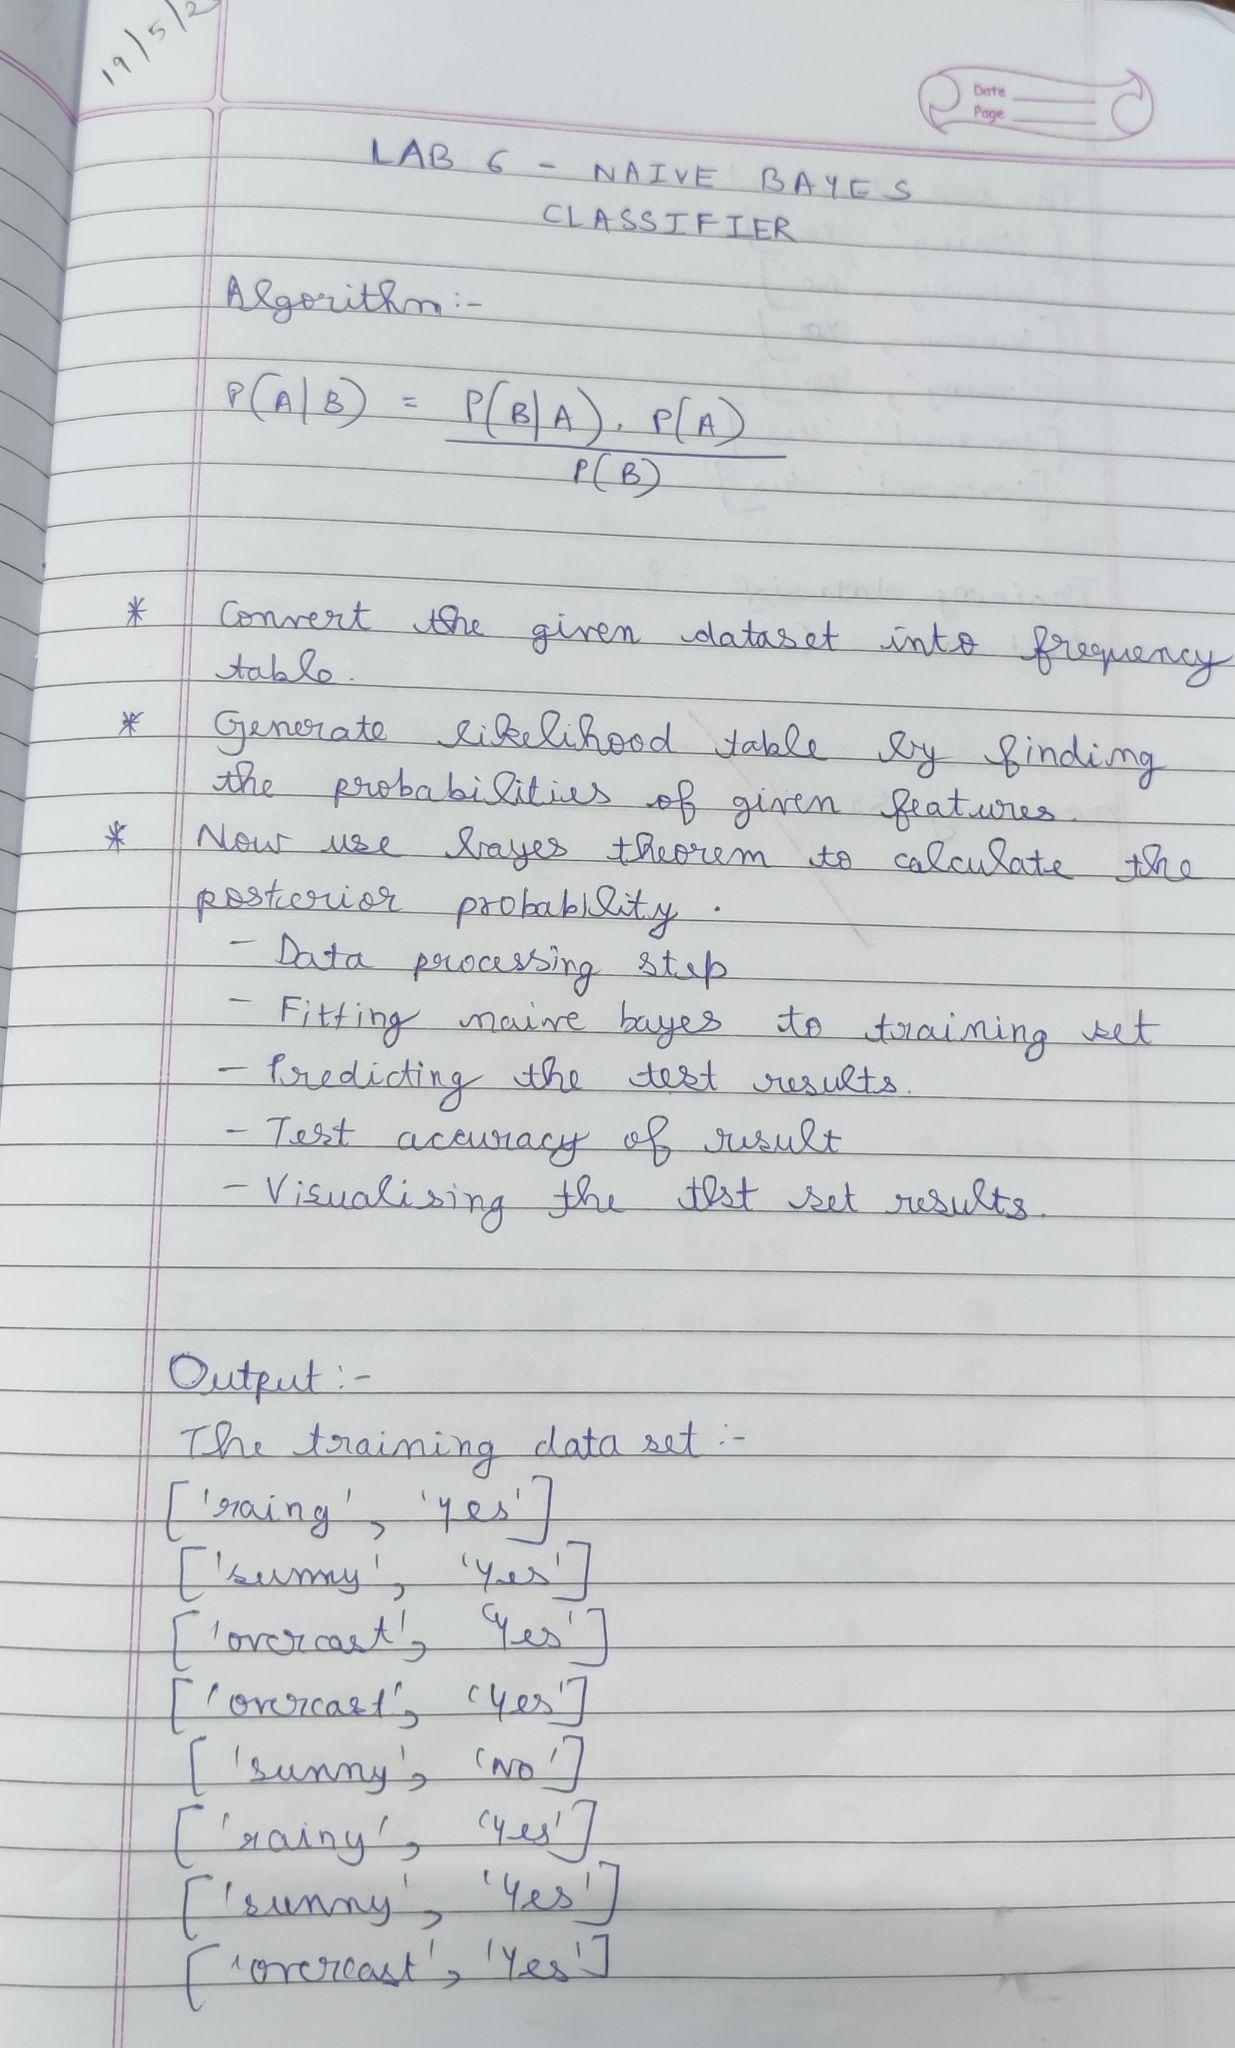 19/5/2
Date
Page
LAB 6 - NAIVE BAYES
CLASSIFIER
Algorithm :-
P(A|B) = P(B|A). P(A)
P(B)
* Convert the given dataset into frequency
table.
* Generate likelihood table by finding
the probabilities of given features.
* Now use bayes theorem to calculate the
posterior probability.
- Data processing step
- Fitting naive bayes to training set
- Predicting the test results.
- Test accuracy of result
- Visualising the test set results.
Output :-
The training data set :-
['raing', 'yes']
['sunny', 'Yes']
['overcast', 'Yes']
['overcast', 'Yes']
['sunny', 'No']
['rainy', 'Yes']
['sunny', 'Yes']
['overcast', 'Yes']